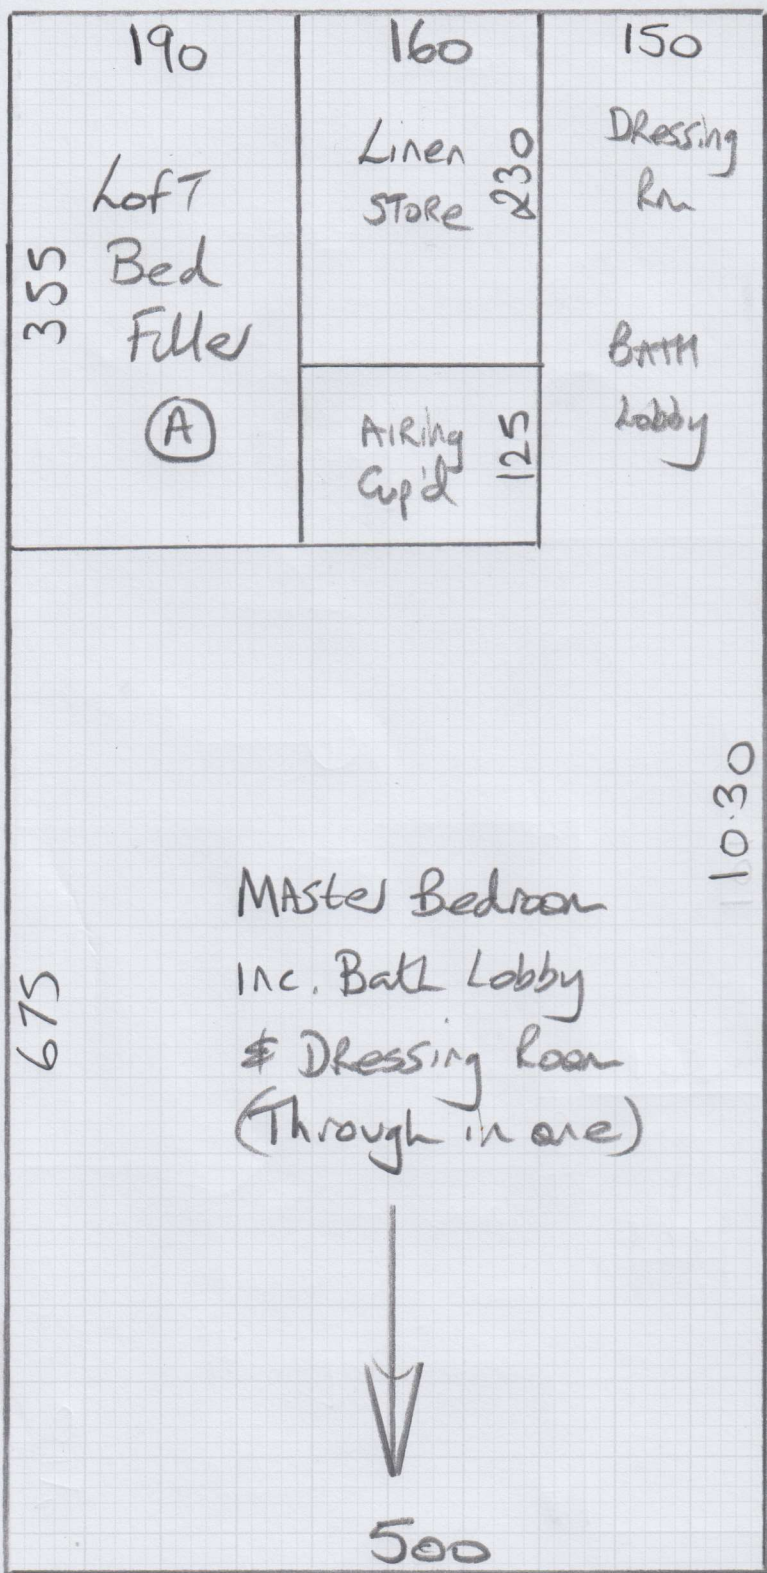 190
160
150
Loft
Bed
Filler
A
355
Linen
Store
230
Dressing
Rm
Bath
Lobby
Airing
Cup'd
125
10.30
Master Bedroom
Inc. Bath Lobby
& Dressing Room
(Through in one)
675
500